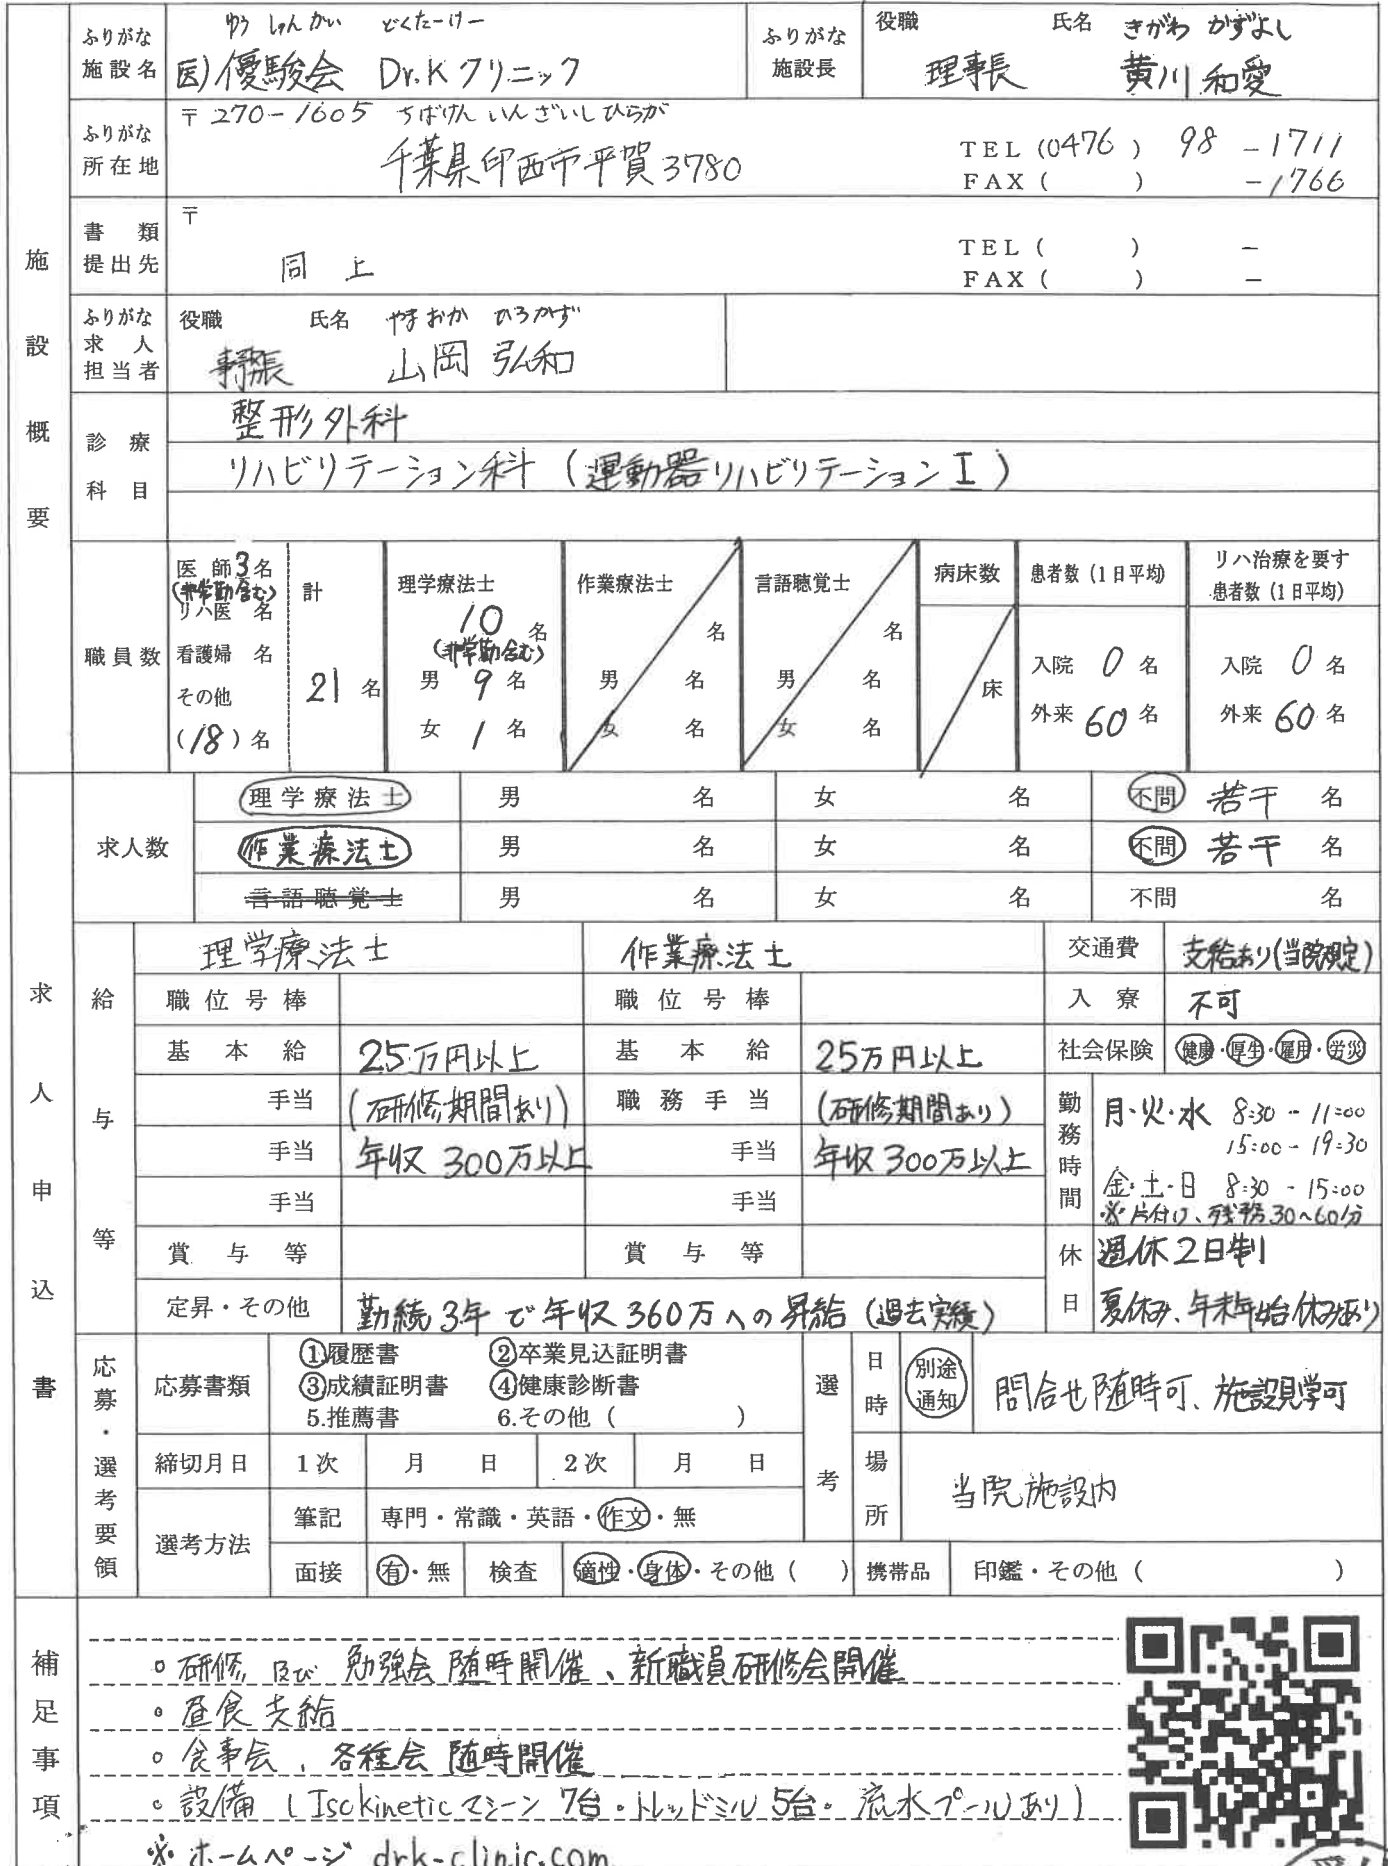 ふりがな ゆうしゅんかい どくたーけー
施設名 医)優駿会 Dr.Kクリニック
ふりがな 役職 氏名 きがわ かずよし
施設長 理事長 黄川 和愛
ふりがな 〒270-1605 ちばけん いんざいし ひらが
所在地 千葉県印西市平賀3780
TEL (0476) 98-1711
FAX ( ) -1766
書類 〒
提出先 同上
TEL ( ) -
FAX ( ) -
ふりがな 役職 氏名 やまおか ひろかず
求人
担当者 山岡 弘和
施設概要
診療 整形外科
科目 リハビリテーション科 (運動器リハビリテーションⅠ)
職員数
医師3名
(非常勤含む)
リハ医 名
看護婦 名
その他
(18)名
計
21名
理学療法士
10名
(非常勤含む)
男 9 名
女 1 名
作業療法士
名
男 名
女 名
言語聴覚士
名
男 名
女 名
病床数
床
患者数(1日平均)
入院 0 名
外来 60 名
リハ治療を要す
患者数(1日平均)
入院 0 名
外来 60 名
求人申込書
求人数
理学療法士 男 名 女 名 不問 若干 名
作業療法士 男 名 女 名 不問 若干 名
言語聴覚士 男 名 女 名 不問 名
給与等
理学療法士 作業療法士
職位号棒 職位号棒
基本給 25万円以上 基本給 25万円以上
手当 (研修期間あり) 職務手当 (研修期間あり)
手当 年収300万以上 手当 年収300万以上
手当 手当
賞与等 賞与等
定昇・その他 勤続3年で年収360万への昇給(過去実績)
交通費 支給あり(当院規定)
入寮 不可
社会保険 健康・厚生・雇用・労災
勤務時間 月・火・水 8:30-11:00
15:00-19:30
金・土・日 8:30-15:00
※片付け、残務30〜60分
休日 週休2日制
夏休み、年末年始休みあり
応募・選考要領
応募書類 ①履歴書 ②卒業見込証明書
③成績証明書 ④健康診断書
5.推薦書 6.その他( )
締切月日 1次 月 日 2次 月 日
選考方法 筆記 専門・常識・英語・作文・無
面接 有・無 検査 適性・身体・その他( )
選考
日時 別途通知 問合せ随時可、施設見学可
場所 当院施設内
携帯品 印鑑・その他( )
補足事項
○研修 及び 勉強会 随時開催、新職員研修会開催
○昼食支給
○食事会、各種会 随時開催
○設備 (Isokineticマシーン 7台・トレッドミル 5台・流水プールあり)
※ホームページ drk-clinic.com